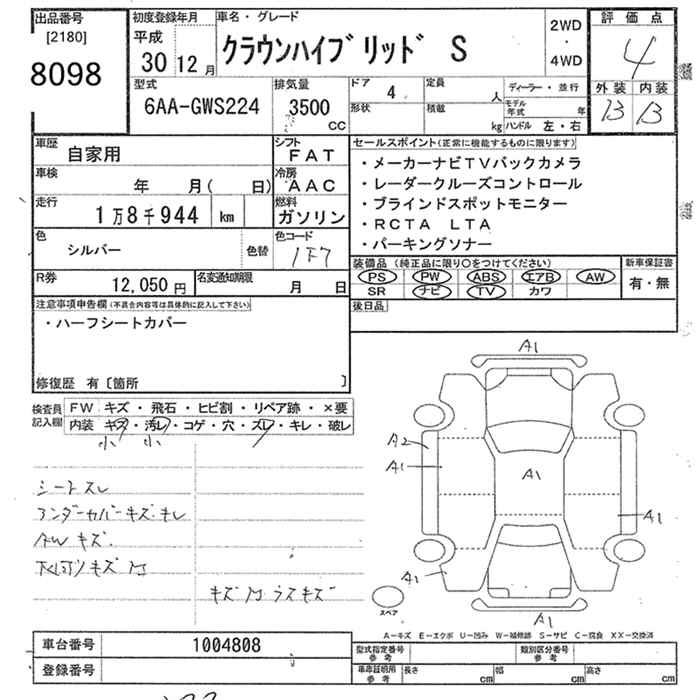 出品番号 初度登録年月 車名・グレード 2WD・4WD 評価点
[2180] 平成 30 12月 クラウンハイブリッド S 4
8098 外装 内装
型式 排気量 ドア 定員 ディーラー・並行 B B
6AA-GWS224 3500 CC 4 人 モデル年式 年
形状 積載 kg ハンドル 左・右
車歴 自家用 シフト FAT セールスポイント(正常に機能するものに限ります)
車検 年 月( 日) 冷房 AAC ・メーカーナビTVバックカメラ
・レーダークルーズコントロール
走行 1万8千944 km 燃料 ガソリン ・ブラインドスポットモニター
・RCTA LTA
色 シルバー 色替 色コード 1F7 ・パーキングソナー
装備品(純正品に限り○をつけてください) 新車保証書
R券 12,050円 名変通知期限 月 日 PS PW ABS エアB AW 有・無
SR ナビ TV カワ
注意事項申告欄(不具合内容等は具体的に記入して下さい) 後日品
・ハーフシートカバー
修復歴 有〔箇所 〕
検査員記入欄 FW キズ・飛石・ヒビ割・リペア跡・×要
内装 キズ・汚レ・コゲ・穴・スレ・キレ・破レ
小 小
A1
A2
A1 A1
A1
シートスレ
アンダーカバーキズ・キレ
AWキズ
A1
A1
スペア
A-キズ E-エクボ U-凹み W-補修跡 S-サビ C-腐食 XX-交換済
車台番号 1004808 型式指定番号 参考 類別区分番号 参考
登録番号 車庫証明用 参考 長さ cm 幅 cm 高さ cm